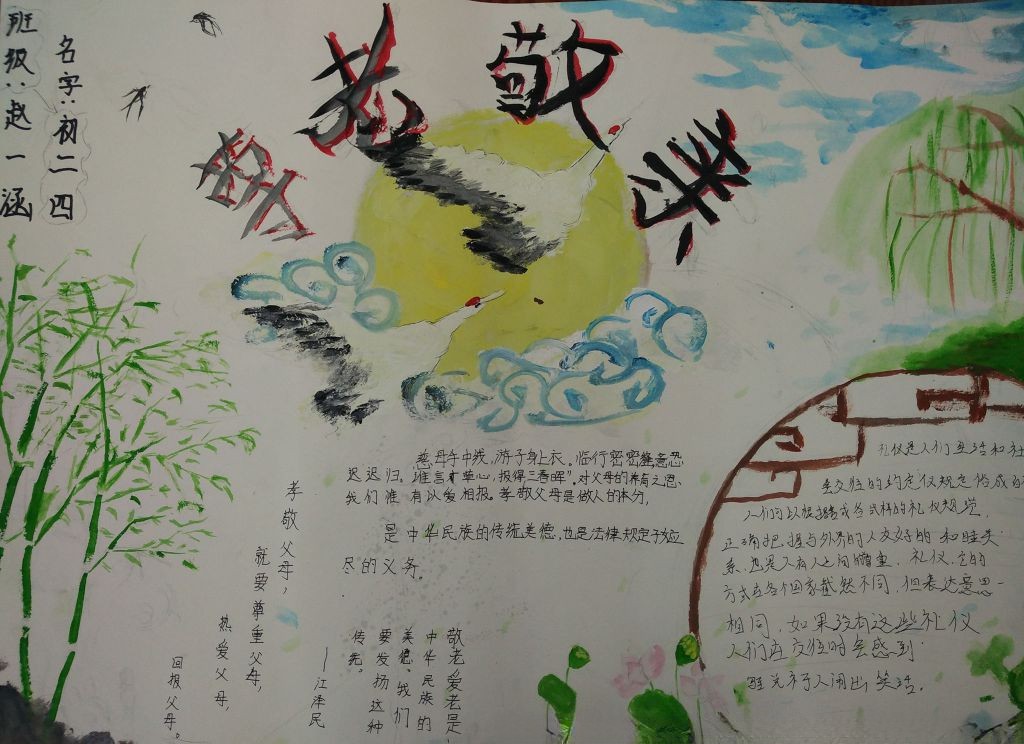 班级：赵一涵
名字：初二四
老敬
慈母手中线，游子身上衣。临行密密缝，意恐
迟迟归。谁言寸草心，报得三春晖"。对父母的养育之恩、
我们唯有以爱相报。孝敬父母是做人的本分，
是中华民族的传统美德，也是法律规定子女应
尽的义务。
孝敬父母，
就要尊重父母，
热爱父母，
回报父母。
敬老爱老是
中华民族的
美德、我们
要发扬这种
传统。
——江泽民
礼仪是人们生活和社
会交往的约定仪规定俗成
人们可以根据各式各样的礼仪规范，
正确把握与外界的人友好的和睦关
系，也是人与人之间的尊重。礼仪
方式在各个国家截然不同，但表达意思
相同，如果没有这些礼仪
人们在交往时会感到
闹出笑话。